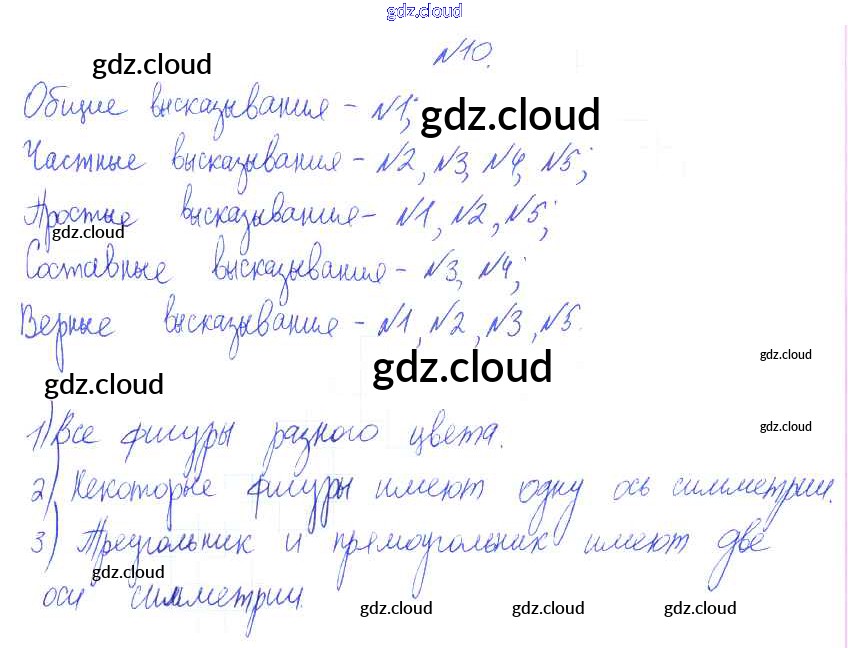 gdz.cloud
№10.
gdz.cloud
Общие высказывания - №1;
gdz.cloud
Частные высказывания - №2, №3, №4, №5;
Простые высказывания - №1, №2, №5;
gdz.cloud
Составные высказывания - №3, №4;
Верные высказывания - №1, №2, №3, №5.
gdz.cloud
gdz.cloud
gdz.cloud
gdz.cloud
1) Все фигуры разного цвета.
2) Некоторые фигуры имеют одну ось симметрии.
3) Треугольник и прямоугольник имеют две
gdz.cloud
оси симметрии.
gdz.cloud gdz.cloud gdz.cloud